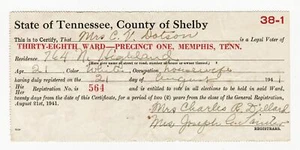 State of Tennessee, County of Shelby 38-1
This is to Certify, That Mrs C. V. Dotson is a Legal Voter of
THIRTY-EIGHTH WARD—PRECINCT ONE, MEMPHIS, TENN.
Residence 764 N. Highland
Age 21 Color White, Occupation housewife
having duly registered on the 21 day of August 194
His Her Registration No. is 564 and is entitled to vote in all elections to be held in said Ward
to the date of this Certificate, for a period of two (2) years from the close of the General Registration,
August 21st, 1941.
Mrs Charles B. Dillard
Mrs. Joseph
REGISTRARS.